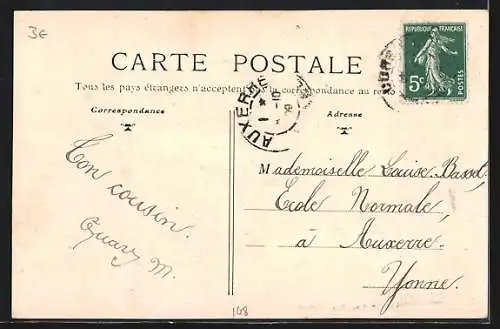 3€
CARTE POSTALE
RÉPUBLIQUE FRANÇAISE
5c
POSTES
Tous les pays étrangers n'acceptent la correspondance au
Correspondance
Adresse
AUXERRE
Ton cousin.
M.
Mademoiselle Louise Basset,
Ecole Normale,
à Auxerre.
Yonne.
108